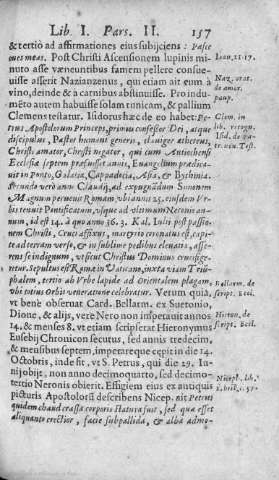 Lib. I. Pars. II. 157
& tertiò ad affirmationes eius subijciens: Pasce
oues meas. Post Christi Ascensionem lupinis mi-
nuto asse væneuntibus famem pellere consue-
uisse asserit Nazianzenus, qui etiam ait eum à
vino, deinde & à carnibus abstinuisse. Pro indu-
mēto autem habuisse solam tunicam, & pallium
Clemens testatur. Isidorus hæc de eo habet: Pe-
trus Apostolorum Princeps, primus confessor Dei, atque
discipulus, Pastor humani generis,
Christi amator, Christi negator, qui cum Antiochensi
Ecclesiæ septem præfuisset annis, Euangelium prædica-
uit in Ponto, Galatia, Cappadocia, Asia, & Bythinia.
Secundo verò anno Claudij, ad expugnādum Simonem
Magnum peruenit Romam vbi annis 25. eiusdem Vr-
bis tenuit Pontificatum, vsque ad vltimum Neronis an-
num, id est 14. à quo anno 36. 3. Kal. Iulij post passio-
nem Christi, Cruci affixus, martyrio coronatus est, capi-
te ad terram verso, & in sublime pedibus eleuatis, asse-
rens se indignum, vt sicut Christus Dominus crucifige-
retur. Sepultus est Romæ in Vaticano, iuxta viam Triū-
phalem, tertio ab Vrbe lapide ad Orientalem plagam,
vbi totius Orbis veneratione celebratur. Verum quia,
vt benè obseruat Card. Bellarm. ex Suetonio,
Dione, & alijs, vere Nero non imperauit annos
14. & menses 8. vt etiam scripserat Hieronymus
Eusebij Chronicon secutus, sed annis tredecim,
& mensibus septem, imperareque cępit in die 14.
Octobris, inde fit, vt S. Petrus, qui die 29. Iu-
nij obijt, non anno decimoquarto, sed decimo-
tertio Neronis obierit. Effigiem eius ex antiquis
picturis Apostolorū describens Nicep. ait Petrus
quidem haud crassa corporis statura fuit, sed quæ esset
aliquanto erectior, facie subpallida, & alba admo-
Ioan. 21. 17.
Naz. orat.
de amor.
paup.
Clem. in
lib. recogn.
Isid. de pa-
tr. vtri. Test.
Bellarm. de
script. Eccl.
Hieron. de
script. Eccl.
Niceph. lib.